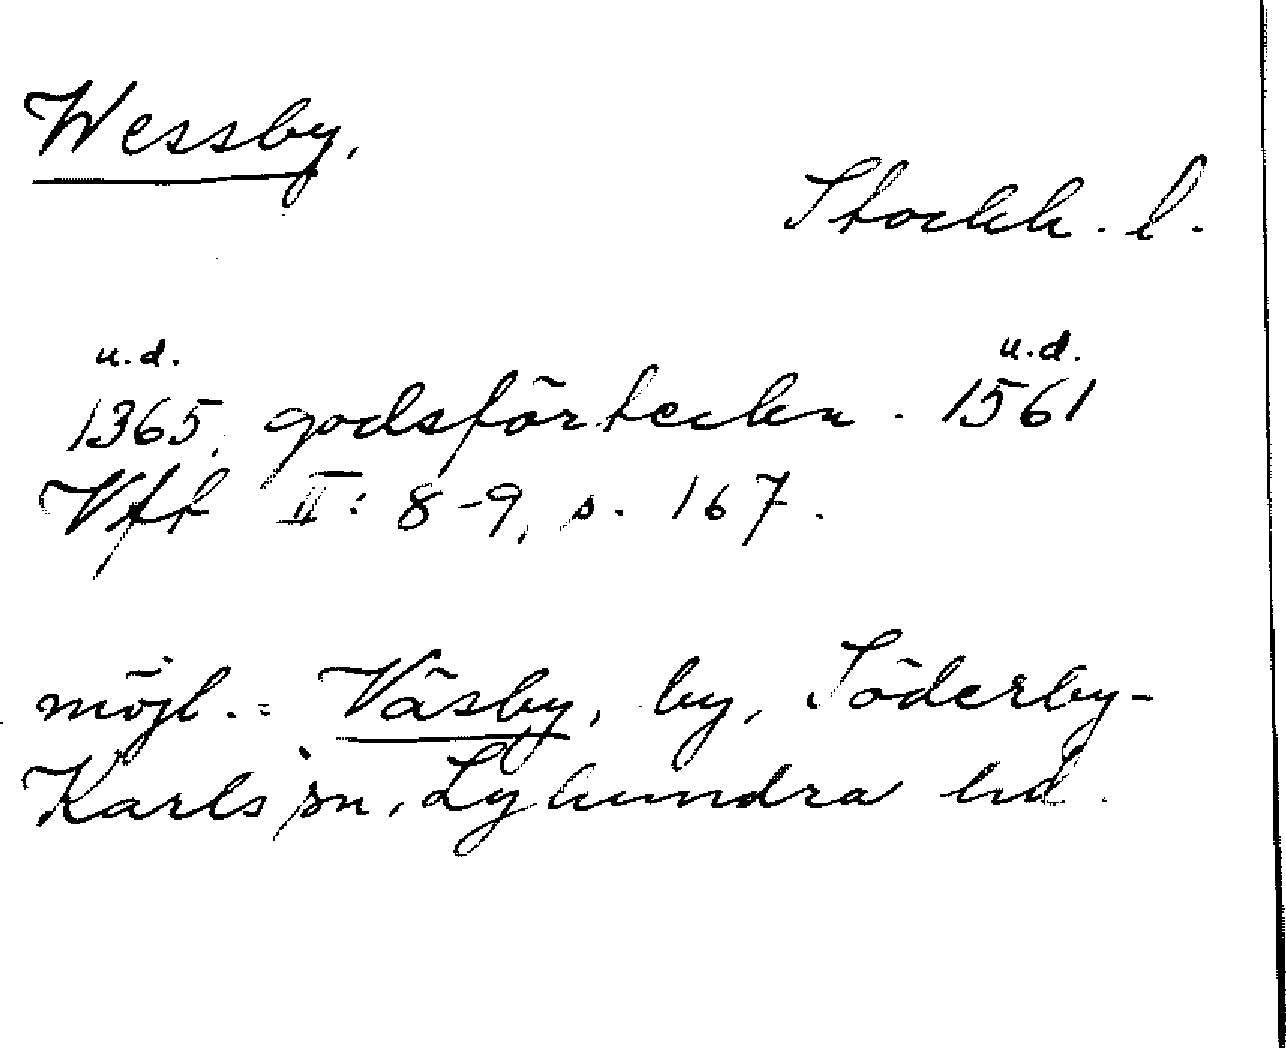 Wessby.
Stockh. l.
u.d. u.d.
1365, godsförteckn. 1561
Vff II: 8-9, s. 167.
möjl. = Väsby, by, Söderby-
Karls sn, Lyhundra hd.